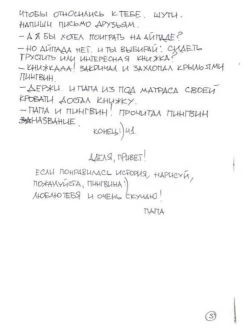 ЧТОБЫ ОТНОСИЛИСЬ К ТЕБЕ. ШУТИ.
НАПИШИ ПИСЬМО ДРУЗЬЯМ.
– А Я БЫ ХОТЕЛ ПОИГРАТЬ НА АЙПАДЕ?
– НО АЙПАДА НЕТ. И ТЫ ВЫБИРАЙ: СИДЕТЬ
ГРУСТИТЬ ИЛИ ИНТЕРЕСНАЯ КНИЖКА?
– КНИЖКАА! ЗАКРИЧАЛ И ЗАХЛОПАЛ КРЫЛЬЯМИ
ПИНГВИН
– ДЕРЖИ. И ПАПА ИЗ ПОД МАТРАСА СВОЕЙ
КРОВАТИ ДОСТАЛ КНИЖКУ.
– ПАПА И ПИНГВИН! ПРОЧИТАЛ ПИНГВИН
НАЗВАНИЕ.
КОНЕЦ:) Ч1.
ДЕЛЯ, ПРИВЕТ!
ЕСЛИ ПОНРАВИЛАСЬ ИСТОРИЯ, НАРИСУЙ,
ПОЖАЛУЙСТА, ПИНГВИНА:)
ЛЮБЛЮ ТЕБЯ И ОЧЕНЬ СКУЧАЮ!
ПАПА